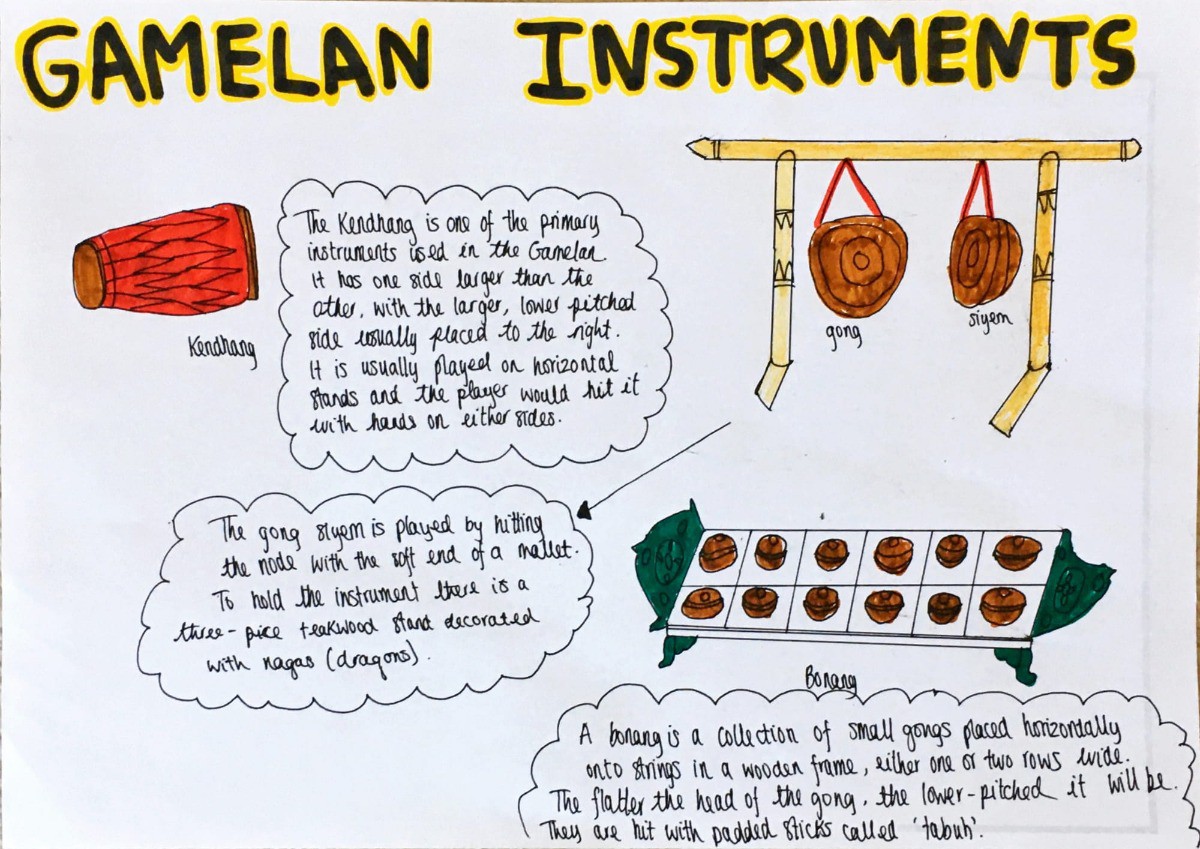 GAMELAN INSTRUMENTS
The Kendhang is one of the primary
instruments used in the Gamelan.
It has one side larger than the
other, with the larger, lower pitched
side usually placed to the right.
It is usually played on horizontal
stands and the player would hit it
with hands on either sides.
Kendhang
gong
siyem
The gong siyem is played by hitting
the node with the soft end of a mallet.
To hold the instrument there is a
three-pice teakwood stand decorated
with nagas (dragons).
Bonang
A bonang is a collection of small gongs placed horizontally
onto strings in a wooden frame, either one or two rows wide.
The flatter the head of the gong, the lower-pitched it will be.
They are hit with padded sticks called 'tabuh'.